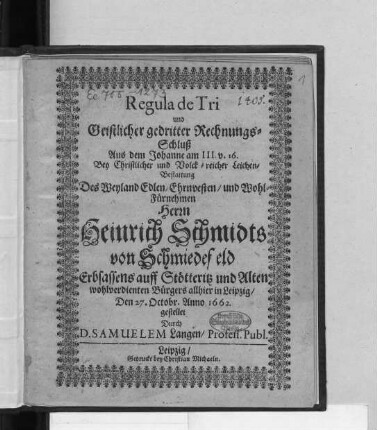 1
Regula de Tri
und
Geistlicher gedritter Rechnungs-
Schluß
Aus dem Johanne am III. v. 16.
Bey Christlicher und Volck-reicher Leichen-
Bestattung
Des Weyland Edlen, Ehrnvesten/ und Wohl-
Fürnehmen
Herrn
Heinrich Schmidts
von Schmiedefeld
Erbsassens auff Stötteritz und Alten
wohlverdienten Bürgers allhier in Leipzig/
Den 27. Octobr. Anno 1662.
gestellet
Durch
D. SAMUELEM Langen/ Profess. Publ.
Leipzig/
Gedruckt bey Christian Michaeln.